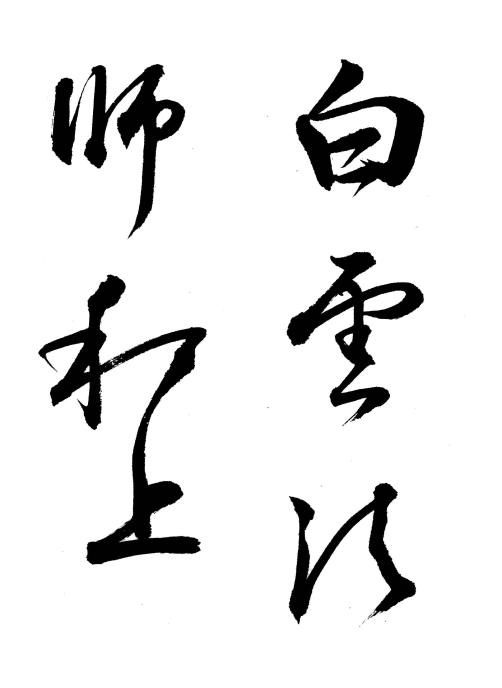 白雲法
師和上